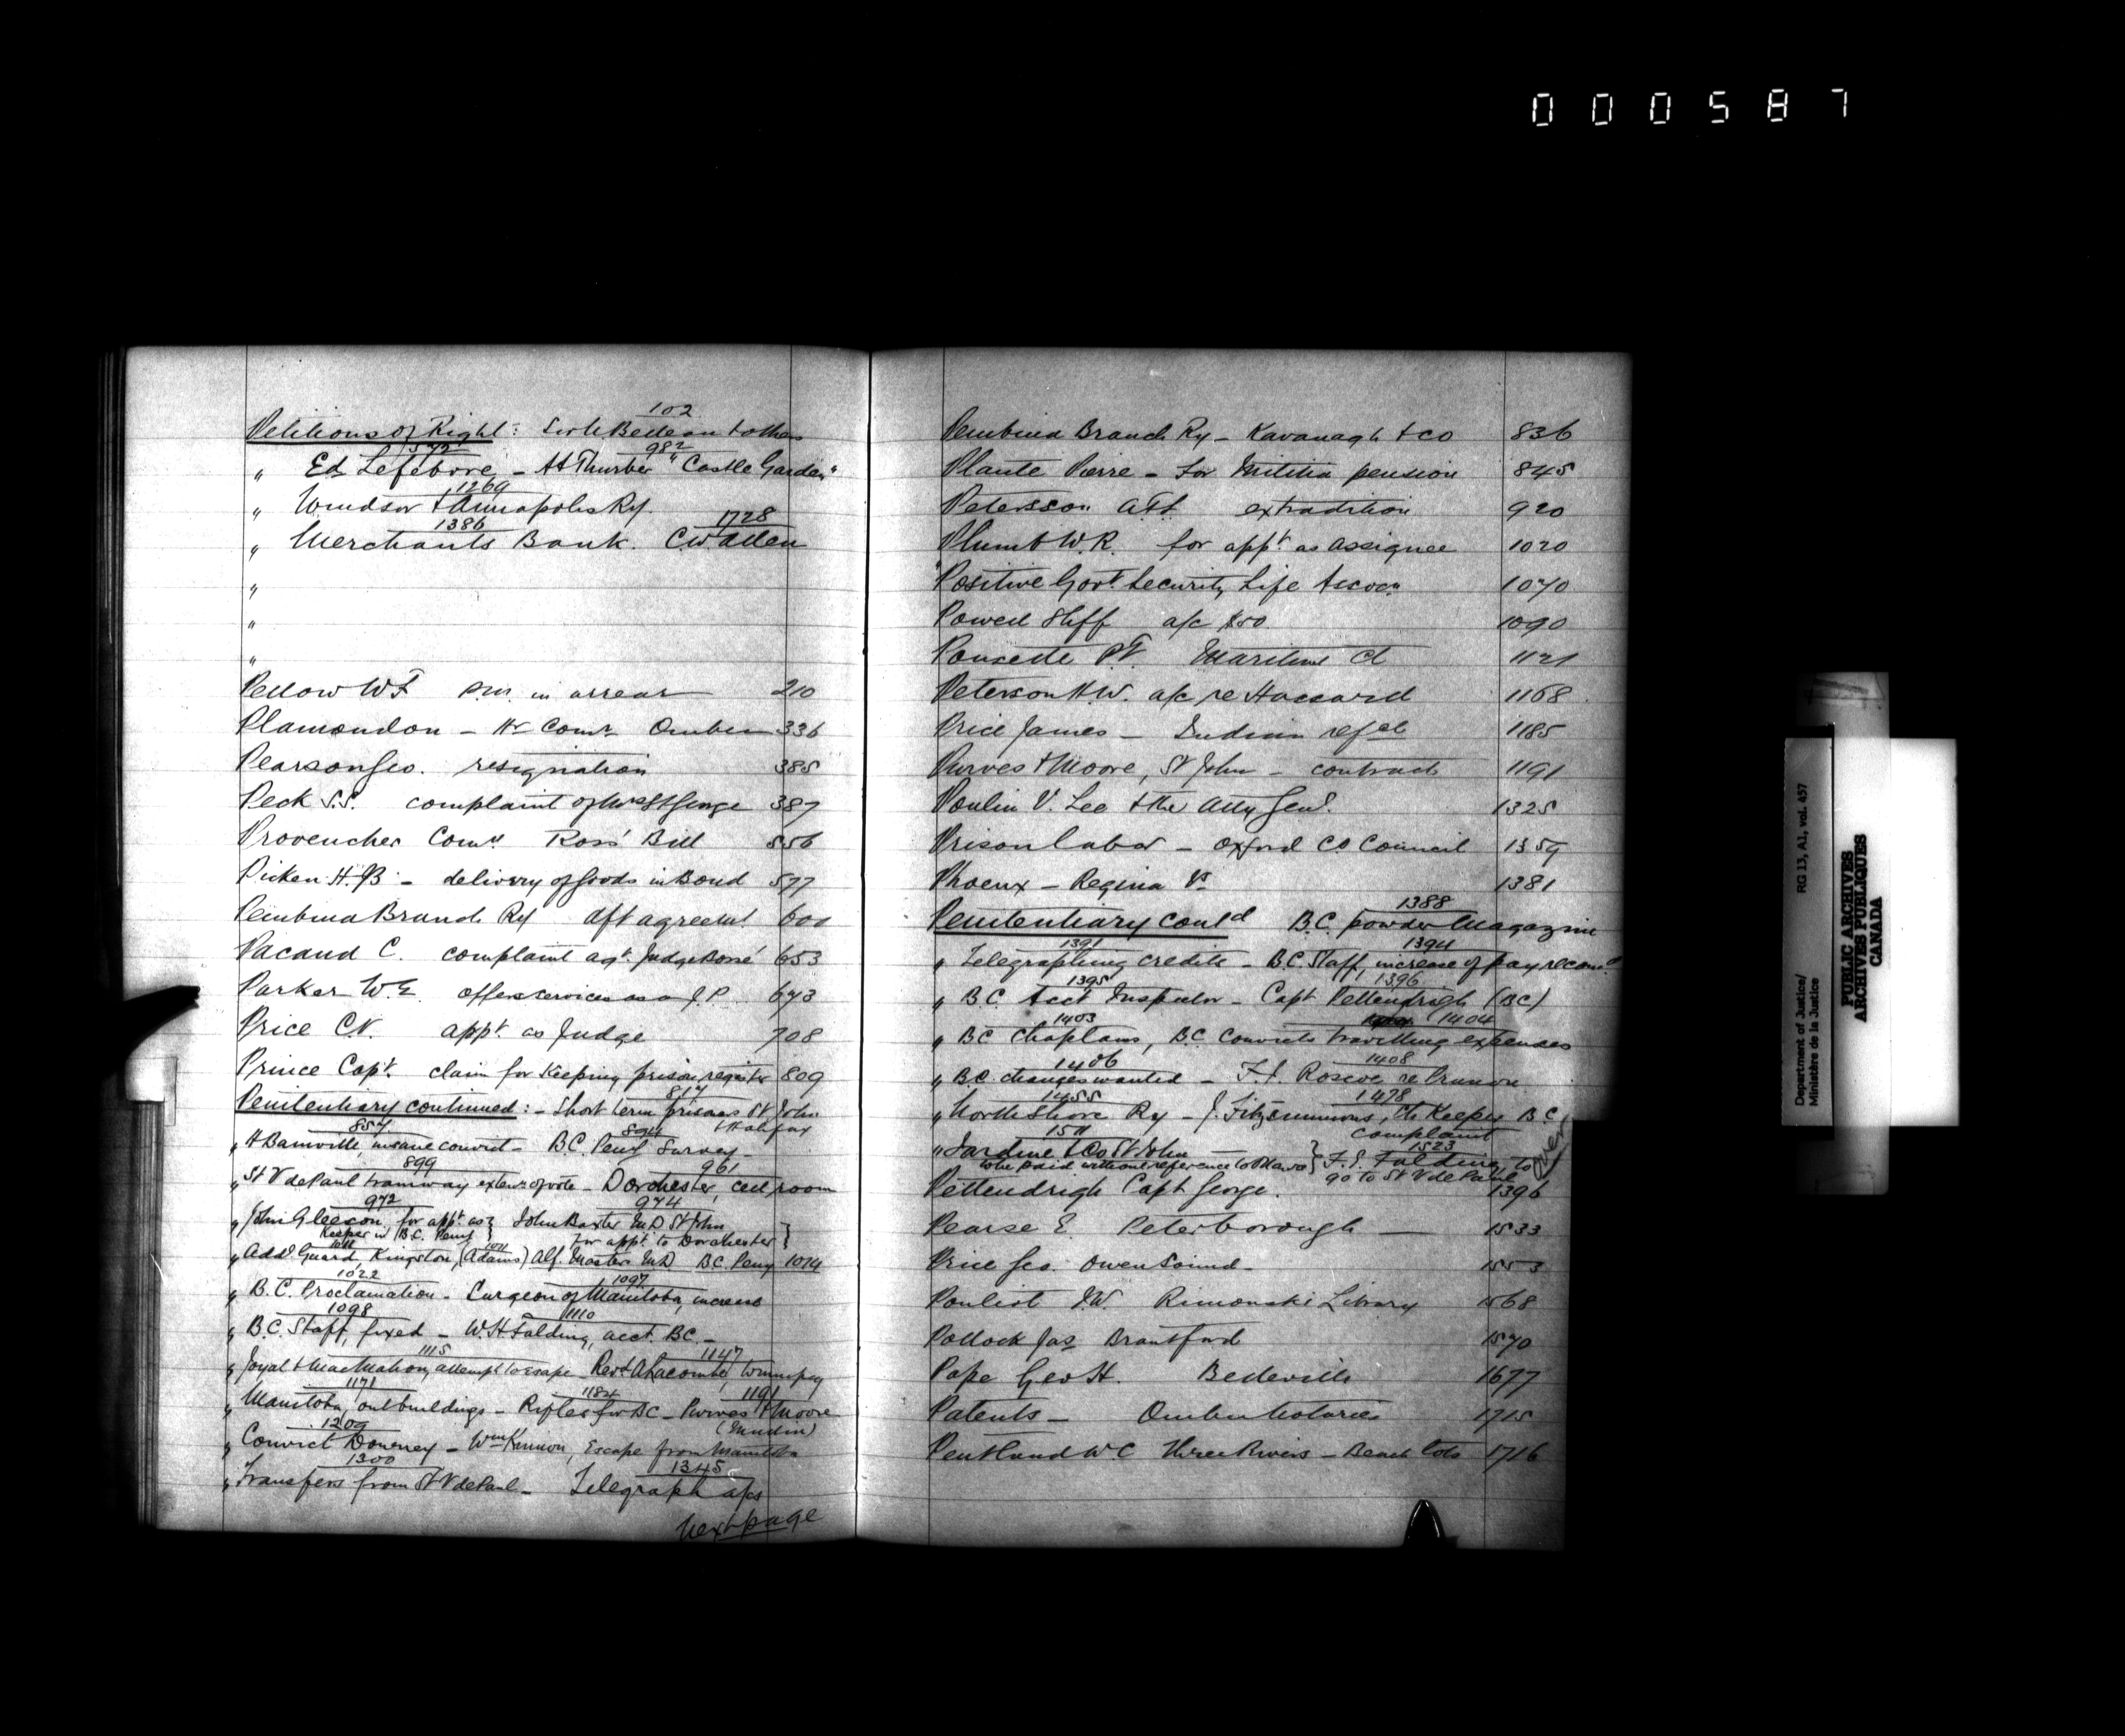 000587
102
Petitions of Right: Sir H Bedeau & others
572 982
" Ed Lefebvre - H Thurber "Castle Garden"
1269
" Windsor & Annapolis Ry.
1386 1728
" Merchants Bank. C W Allen
"
"
"
Pellow W F P.M. in arrear 210
Plamondon - Hr Comr Quebec 336
Pearson Geo. resignation 385
Peck S.S. complaint of Mrs St George 387
Provencher Comr Ross' Bill 556
Picken H.B. - delivery of goods in Bond 577
Pembina Branch Ry dft agreemt 600
Pacaud C. complaint agt. Judge Bossé 653
Parker W.E. offers services as a J.P. 673
Price C.V. appt as Judge 708
Prince Capt. claim for Keeping prison register 809
817
Penitentiary continued: - Short term prisoners St John & Halifax
857 894
" H Bainville, insane convict - BC. Peny Survey -
899 961
" St V de Paul tramway extens of vote - Dorchester, cell room
972 974
" John Gleeson, for appt. as Keeper in B.C. Peny } John Baxter M.D St John for appt to Dorchester }
1011
" Addl Guard, Kingston, (Adams) Alf. Master M.D B.C. Peny 1014
1022 1097
" B.C. Proclamation - Surgeon of Manitoba, increase
1098 1110
" B.C. Staff, fixed - W.H Falding, acct. BC. -
1115 1147
" Joyal & MacMahon, attempt to escape - Revd A Lacombe, Winnipeg
1171 1184 1191
" Manitoba, outbuildings - Rifles for BC - Purves & Moore
1209
" Convict Downey - Wm Kennon, Escape from Manitoba
1300 1345
" Transfers from St V de Paul - Telegraph a/cs
Next page
Pembina Branch Ry - Kavanagh & Co 836
Plante Pierre - for Militia pension 845
Petersson extradition 920
Plumb W.R. for appt as Assignee 1020
Positive Govt. Security Life Assocn 1070
Powell Shff a/c $50 1090
Maritime Ct 1121
Peterson H.W. a/c re Hassard 1168
Price James - Indian refce 1185
Purves & Moore, St John - contract 1191
Poulin V. Lee & the Atty Genl. 1325
Prison labor - Oxford Co Council 1359
Phoenx - Regina Vs 1381
1388
Penitentiary contd B.C. powder Magazine
1391 1394
" Telegraphing credits - B.C. Staff, increase of pay recomd
1395 1396
" B.C. Acct Inspector - Capt Pettendrigh (BC)
1403 1404
" BC Chaplains, B.C. Convicts travelling expenses
1406 1408
" B.C. changes wanted - F.J. Roscoe re
1455 1478
" North Shore Ry - J. Fitzsimmons, Ch Keeper B C complaint
1511 1523
" Jardine & Co St John - to be paid without reference to Ottawa } F.S. Falding, to go to St V de Paul
over
Pettendrigh Capt George. 1396
Pearse E. Peterborough 1533
Price Geo. Owen Sound - 1553
Pouliot J.W. Rimouski Library 1568
Pollock Jas Brantford 1570
Pope Geo H. Belleville 1677
Patents - Quebec Notaries 1715
Pentland W C Three Rivers - Beach lots 1716
Department of Justice/
Ministère de la Justice
RG 13, A1, vol. 457
PUBLIC ARCHIVES
ARCHIVES PUBLIQUES
CANADA